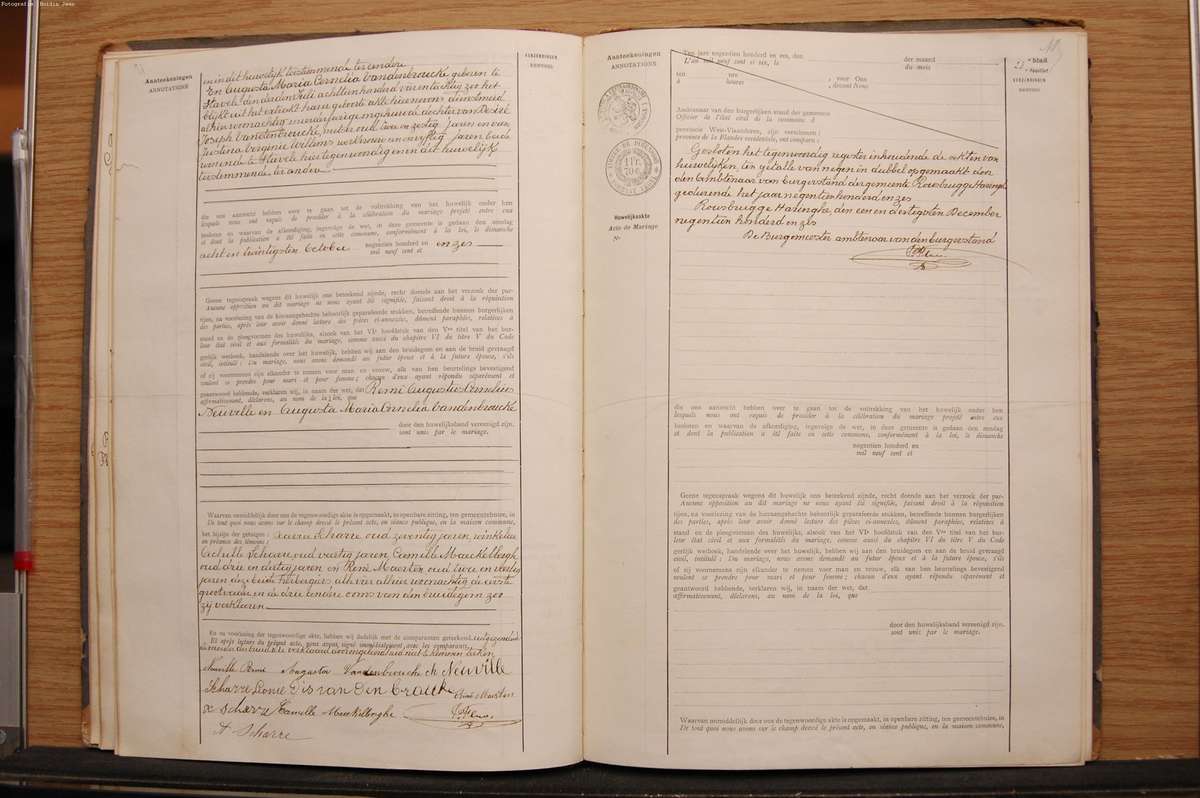 Fotografie: Boidin Jean
Aanteekeningen
ANNOTATIONS
VERZENDINGEN
RENVOIS
en in dit huwelijk toestemmende ter eendre
En Augusta Maria Cornelia Vandenbroucke geboren te
Stavele den derden Juli achttienhonderd vier en tachtig zoo het
blijkt uit het extrakt harer geboorte alhier nevens dienstmeid
alhier woonachtig meerderjarige ongehuwde dochter van Desiré
Joseph Vandenbroucke, metser oud twee en zestig jaren en van
Justina Virginie Willems werkvrouw oud en vijftig jaren beide
wonende te Stavele hier tegenwoordig en in dit huwelijk
toestemmende ter andere
die ons aanzocht hebben over te gaan tot de voltrekking van het huwelijk onder hen
lesquels nous ont requis de procéder à la célébration du mariage projeté entre eux
besloten en waarvan de afkondiging, ingevolge de wet, in deze gemeente is gedaan den zondag
et dont la publication a été faite en cette commune, conformément à la loi, le dimanche
acht en twintigsten October negentien honderd en en zes
mil neuf cent et
Geene tegenspraak wegens dit huwelijk ons beteekend zijnde, recht doende aan het verzoek der par-
Aucune opposition au dit mariage ne nous ayant été signifiée, faisant droit à la réquisition
tijen, na voorlezing van de hieraangehechte behoorlijk geparafeerde stukken, betreffende hunnen burgerlijken
des parties, après leur avoir donné lecture des pièces ci-annexées, dûment paraphées, relatives à
stand en de pleegvormen des huwelijks, alsook van het VIe hoofdstuk van den Ven titel van het bur-
leur état civil et aux formalités du mariage, comme aussi du chapitre VI du titre V du Code
gerlijk wetboek, handelende over het huwelijk, hebben wij aan den bruidegom en aan de bruid gevraagd
civil, intitulé : Du mariage, nous avons demandé au futur époux et à la future épouse, s'ils
of zij voornemens zijn elkander te nemen voor man en vrouw, elk van hen beurtelings bevestigend
veulent se prendre pour mari et pour femme ; chacun d'eux ayant répondu séparément et
geantwoord hebbende, verklaren wij, in naam der wet, dat Remi Augustin Cornelius
affirmativement, déclarons, au nom de la loi, que
Neuville en Augusta Maria Cornelia Vandenbroucke
door den huwelijksband vereenigd zijn.
sont unis par le mariage.
Waarvan onmiddellijk door ons de tegenwoordige akte is opgemaakt, in openbare zitting, ten gemeentehuize, in
De tout quoi nous avons sur le champ dressé le présent acte, en séance publique, en la maison commune,
het bijzijn der getuigen : Scharre oud zeventig jaren, winkelier
en présence des témoins :
Achille Scharre oud veertig jaren, Camille Maeckelbergh
oud drie en dertig jaren en Remi Maerten oud twee en veertig
jaren deze beide herbergiers alle vier alhier woonachtig de eerste
grootvader en de drie andere ooms van den bruidegom zoo
zij verklaren
En na voorlezing der tegenwoordige akte, hebben wij dadelijk met de comparanten geteekend, uitgezonderd
Et après lecture du présent acte, nous ayant signé immédiatement avec les comparants
Neuville Remi Augusta Vandenbroucke Ch Neuville
Scharre Leonie Disvan Den Broucke Remi Maerten
Scharre Camille Maeckelberghe
A Scharre
Aanteekeningen
ANNOTATIONS
1 Fr.
70 c.
Huwelijksakte
Acte de Mariage
No
blad
feuillet
VERZENDINGEN
RENVOIS
Ten jare negentien honderd en zes, den der maand
L'an mil neuf cent et six, le du mois
ten ure , voor Ons
à heures , devant Nous
Ambtenaar van den burgerlijken stand der gemeente
Officier de l'état civil de la commune d
provincie West-Vlaanderen, zijn verschenen :
province de la Flandre occidentale, ont comparu :
Gesloten het tegenwoordig register inhoudende de akten van
huwelijken, ten getalle van negen in dubbel opgemaakt door
den Ambtenaar van burgerstand der gemeente Rousbrugge Haringhe
gedurende het jaar negentienhonderd en zes
Rousbrugge Haringhe, den een en dertigsten December
negentien honderd en zes
De Burgemeester ambtenaar van den burgerstand
die ons aanzocht hebben over te gaan tot de voltrekking van het huwelijk onder hen
lesquels nous ont requis de procéder à la célébration du mariage projeté entre eux
besloten en waarvan de afkondiging, ingevolge de wet, in deze gemeente is gedaan den zondag
et dont la publication a été faite en cette commune, conformément à la loi, le dimanche
negentien honderd en
mil neuf cent et
Geene tegenspraak wegens dit huwelijk ons beteekend zijnde, recht doende aan het verzoek der par-
Aucune opposition au dit mariage ne nous ayant été signifiée, faisant droit à la réquisition
tijen, na voorlezing van de hieraangehechte behoorlijk geparafeerde stukken, betreffende hunnen burgerlijken
des parties, après leur avoir donné lecture des pièces ci-annexées, dûment paraphées, relatives à
stand en de pleegvormen des huwelijks, alsook van het VIe hoofdstuk van den Ven titel van het bur-
leur état civil et aux formalités du mariage, comme aussi du chapitre VI du titre V du Code
gerlijk wetboek, handelende over het huwelijk, hebben wij aan den bruidegom en aan de bruid gevraagd
civil, intitulé : Du mariage, nous avons demandé au futur époux et à la future épouse, s'ils
of zij voornemens zijn elkander te nemen voor man en vrouw ; elk van hen beurtelings bevestigend
veulent se prendre pour mari et pour femme ; chacun d'eux ayant répondu séparément et
geantwoord hebbende, verklaren wij, in naam der wet, dat
affirmativement, déclarons, au nom de la loi, que
door den huwelijksband vereenigd zijn.
sont unis par le mariage.
Waarvan onmiddellijk door ons de tegenwoordige akte is opgemaakt, in openbare zitting, ten gemeentehuize, in
De tout quoi nous avons sur le champ dressé le présent acte, en séance publique, en la maison commune,